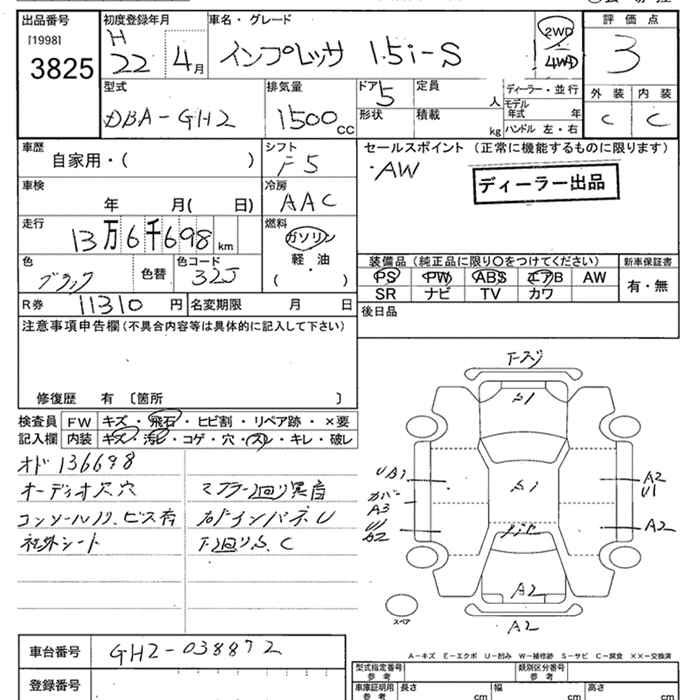 出品番号 初度登録年月 車名・グレード 評価点
[1998] H
3825 22 4月 インプレッサ 1.5i-S 2WD 4WD 3
型式 排気量 ドア 定員 ディーラー・並行 外装 内装
DBA-GH2 1500cc 5 人 モデル年式 年 C C
形状 積載 kg ハンドル 左・右
車歴 シフト セールスポイント (正常に機能するものに限ります)
自家用・( ) F5 ・AW
車検 冷房 ディーラー出品
年 月( 日) AAC
走行 燃料
13万6千698km ガソリン
軽油
・
( )
色 色替 色コード 装備品 (純正品に限り○をつけてください) 新車保証書
ブラック 32J PS PW ABS エアB AW 有・無
SR ナビ TV カワ
R券 11310円 名変期限 月 日 後日品
注意事項申告欄 (不具合内容等は具体的に記入して下さい)
修復歴 有 〔箇所 〕
検査員 FW キズ・飛石・ヒビ割・リペア跡・×要
記入欄 内装 キズ・汚レ・コゲ・穴・スレ・キレ・破レ
オド 136698
オーディオ欠穴
コンソール
ビス有
社外シート
S1
S1
A2
A2
UA1
カバー
A3
A2
U1
A2
スペア
A−キズ E−エクボ U−凹み W−補修跡 S−サビ C−腐食 ××−交換済
車台番号 GH2-038872
登録番号
型式指定番号 参考 類別区分番号 参考
車庫証明用 参考 長さ cm 幅 cm 高さ cm